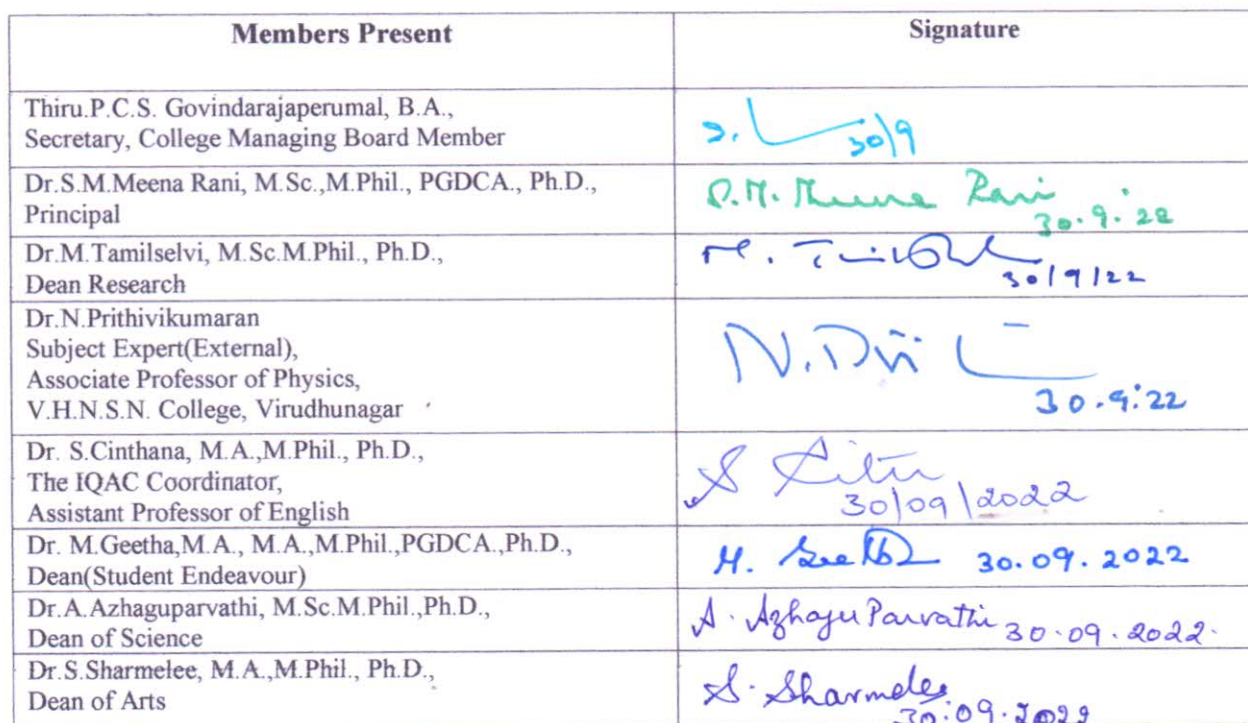 Members Present Signature
Thiru.P.C.S. Govindarajaperumal, B.A.,
Secretary, College Managing Board Member
30/9
Dr.S.M.Meena Rani, M.Sc.,M.Phil., PGDCA., Ph.D.,
Principal
S.M. Meena Rani
30.9.22
Dr.M.Tamilselvi, M.Sc.M.Phil., Ph.D.,
Dean Research
30/9/22
Dr.N.Prithivikumaran
Subject Expert(External),
Associate Professor of Physics,
V.H.N.S.N. College, Virudhunagar
30.9.22
Dr. S.Cinthana, M.A.,M.Phil., Ph.D.,
The IQAC Coordinator,
Assistant Professor of English
30/09/2022
Dr. M.Geetha,M.A., M.A.,M.Phil.,PGDCA.,Ph.D.,
Dean(Student Endeavour)
30.09.2022
Dr.A.Azhaguparvathi, M.Sc.M.Phil.,Ph.D.,
Dean of Science
A. Azhagu Parvathi 30.09.2022.
Dr.S.Sharmelee, M.A.,M.Phil., Ph.D.,
Dean of Arts
S. Sharmelee
30.09.2022